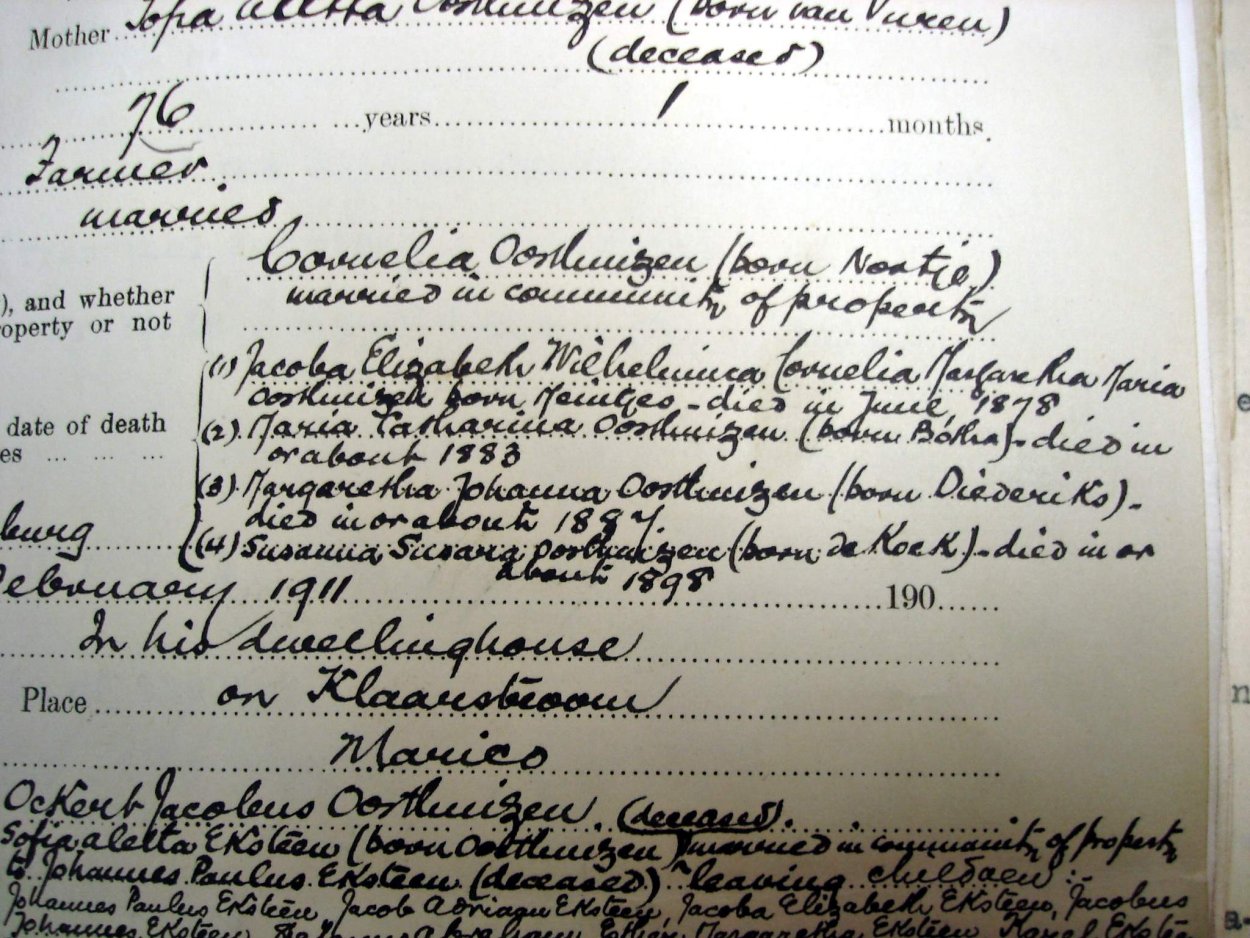 Mother Sofia Aletta Oosthuizen (born van Vuren)
(deceased)
76 years 1 months.
Farmer
married
Cornelia Oosthuizen (born Nortje)
), and whether married in community of property
operty or not
(1) Jacoba Elizabeth Wilhelmina Cornelia Margaretha Maria
Oosthuizen born Meintjes - died in June, 1878
date of death (2) Maria Catharina Oosthuizen (born Botha) - died in
es ... ... ... or about 1883
(3) Margaretha Johanna Oosthuizen (born Diederiks) -
burg died in or about 1887.
(4) Susanna Susara Oosthuizen (born de Kock) - died in or
about 1898
ebruary 1911 190
In his dwellinghouse
Place on Klaarstroom
Marico
Ockert Jacobus Oosthuizen. (deceased).
Sofia Aletta Eksteen (born Oosthuizen) married in community of property
to Johannes Paulus Eksteen (deceased) leaving children:-
Johannes Paulus Eksteen, Jacob Adriaan Eksteen, Jacoba Elizabeth Eksteen, Jacobus
Johannes Eksteen, Margaretha Eksteen, Karel